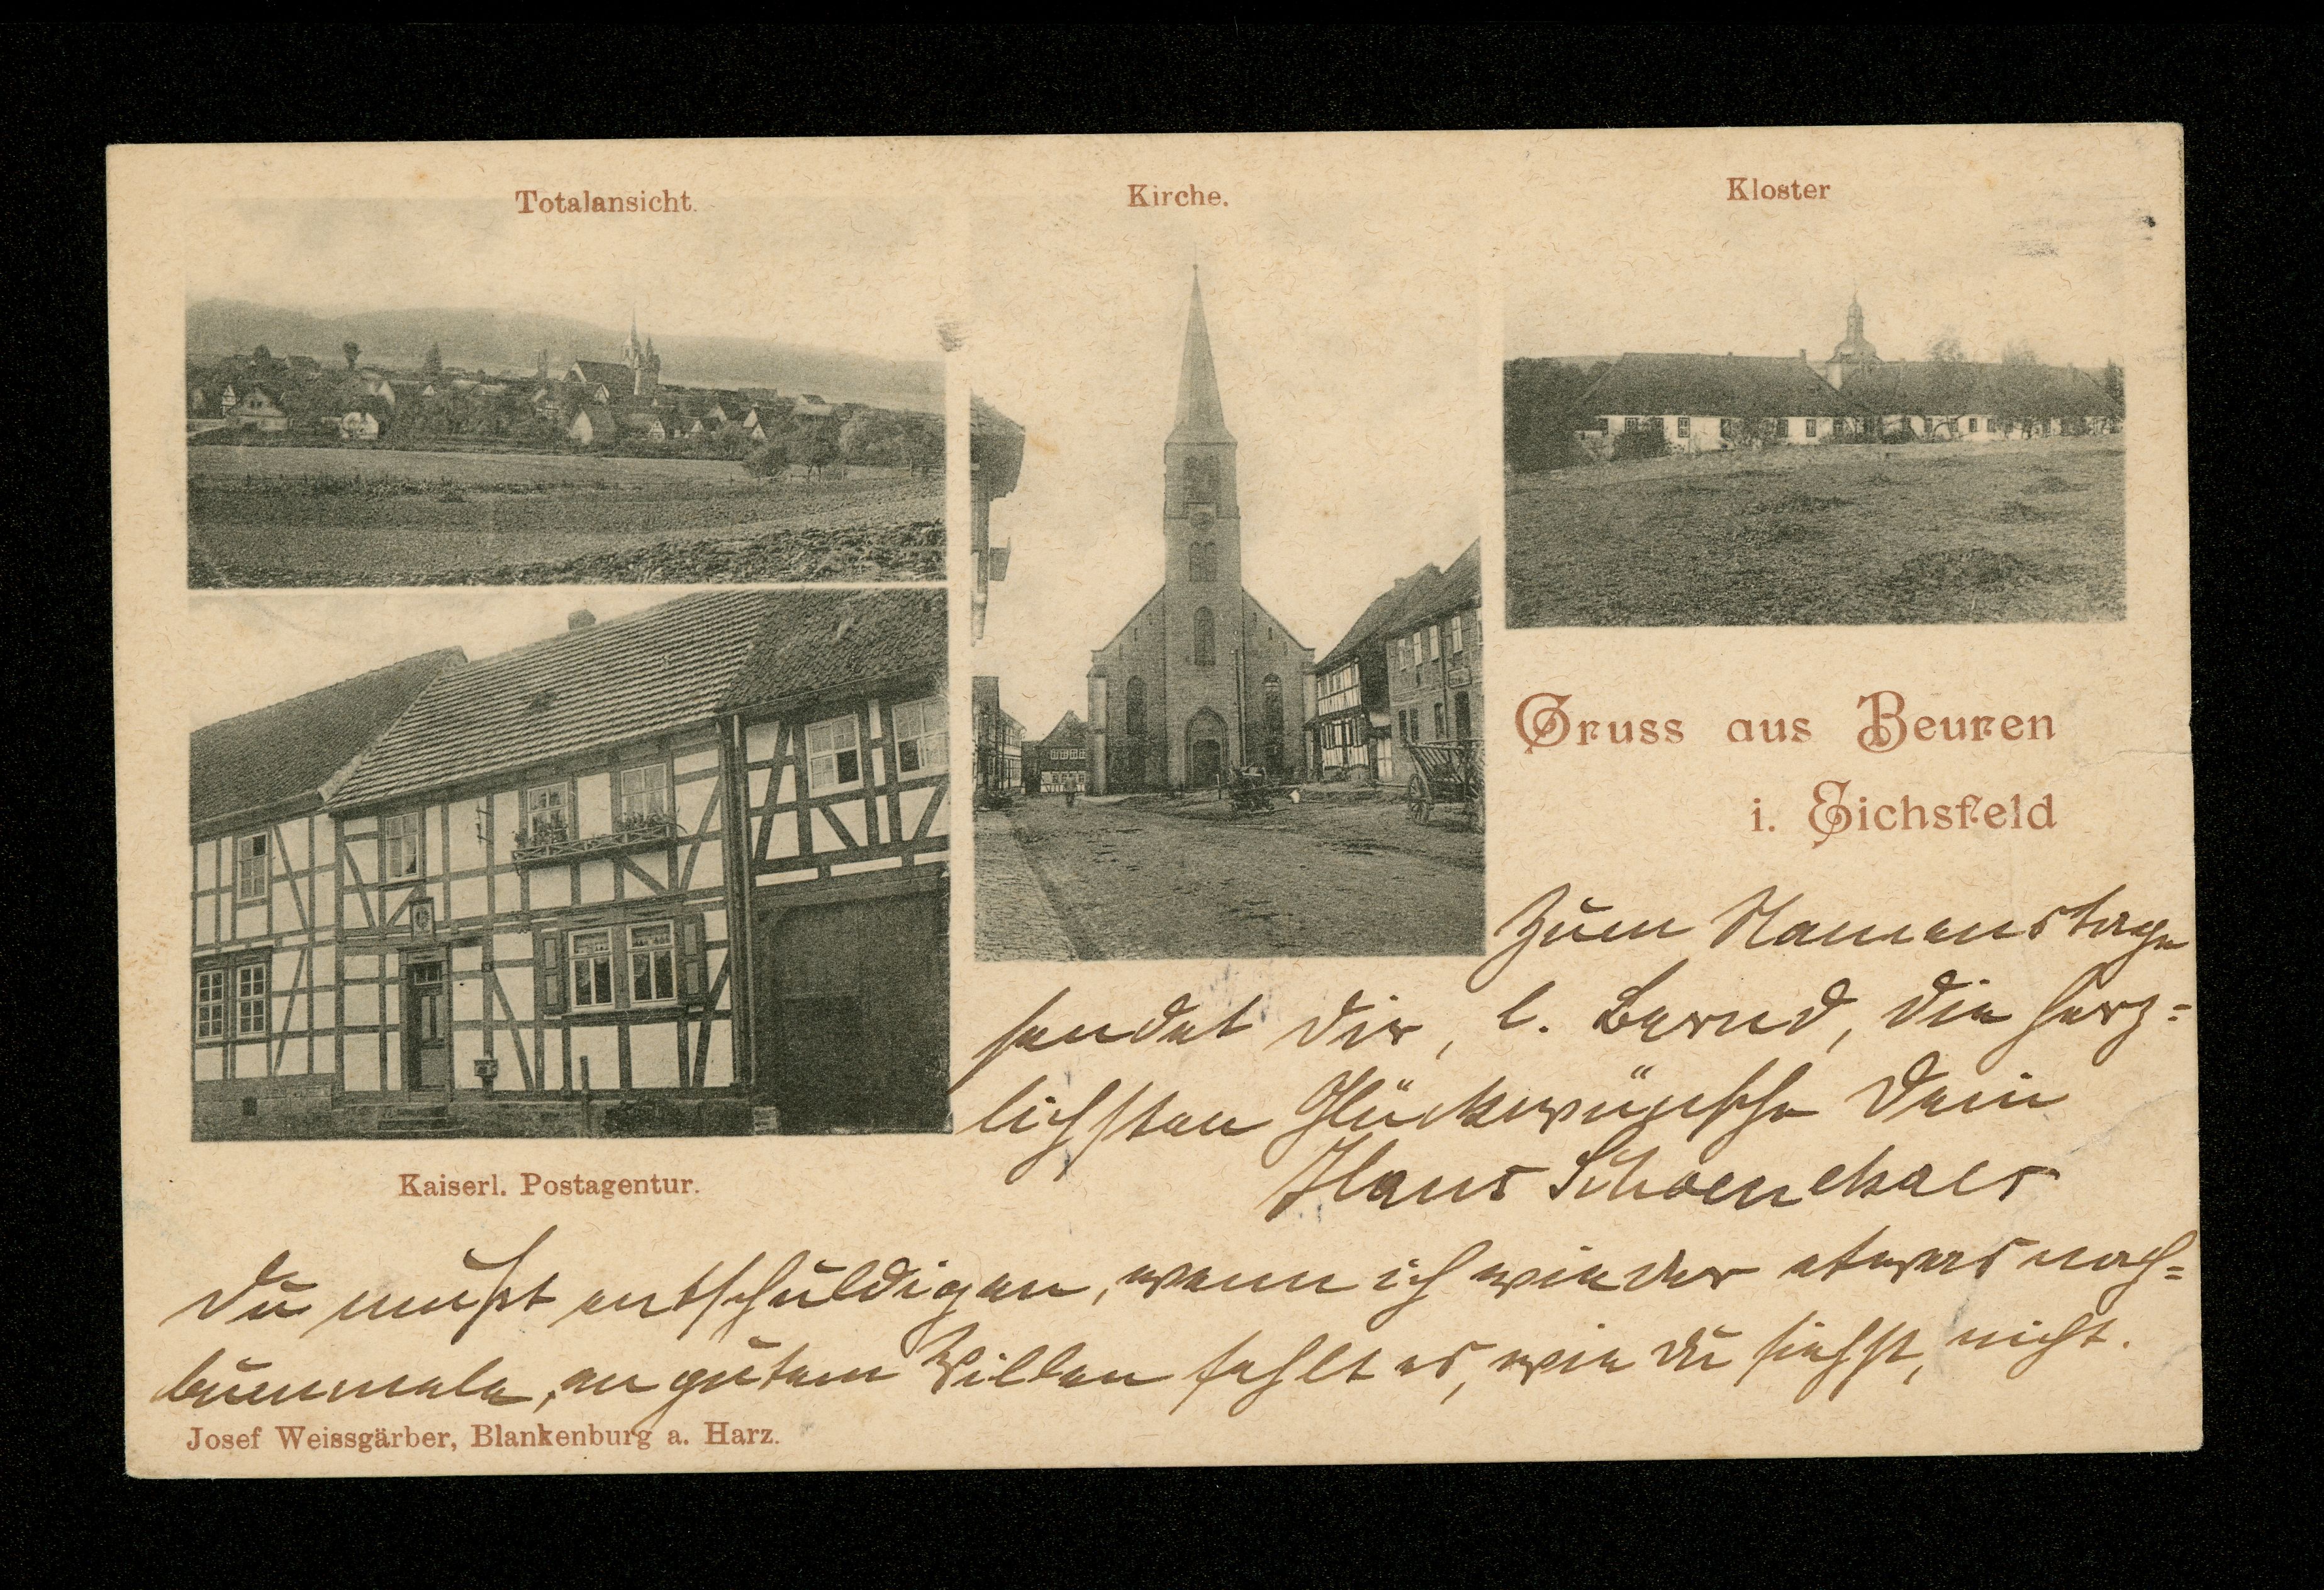 Totalansicht.
Kirche.
Kloster
Gruss aus Beuren
i. Eichsfeld
Zum Namenstage
sendet dir, l. Bernd, die herz=
lichsten Glückwünsche dein
Hans
Kaiserl. Postagentur.
Du mußt entschuldigen, wenn ich wieder etwas nach=
bummele, an gutem Willen fehlt es, wie du siehst, nicht.
Josef Weissgärber, Blankenburg a. Harz.